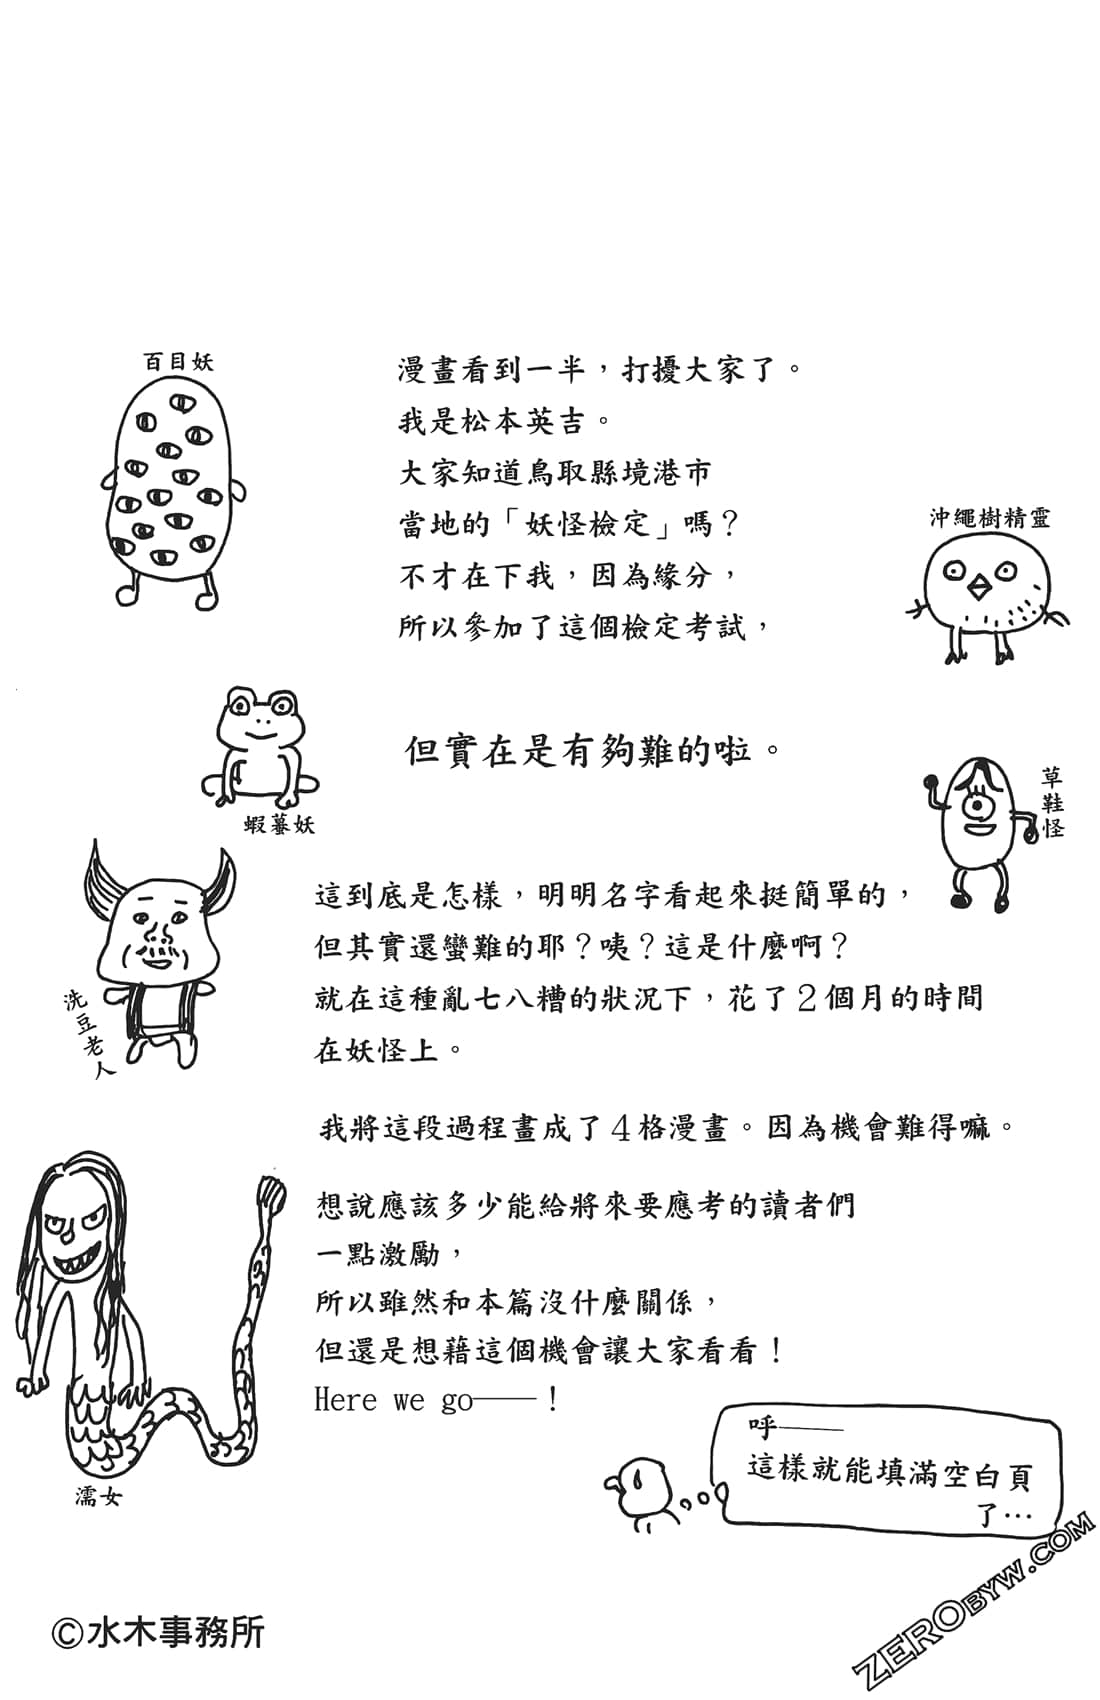 百目妖
漫畫看到一半，打擾大家了。
我是松本英吉。
大家知道鳥取縣境港市
當地的「妖怪檢定」嗎？
不才在下我，因為緣分，
所以參加了這個檢定考試，
沖繩樹精靈
但實在是有夠難的啦。
蝦蟇妖
草鞋怪
這到底是怎樣，明明名字看起來挺簡單的，
但其實還蠻難的耶？咦？這是什麼啊？
就在這種亂七八糟的狀況下，花了2個月的時間
在妖怪上。
洗豆老人
我將這段過程畫成了4格漫畫。因為機會難得嘛。
想說應該多少能給將來要應考的讀者們
一點激勵，
所以雖然和本篇沒什麼關係，
但還是想藉這個機會讓大家看看！
Here we go——！
濡女
呼——
這樣就能填滿空白頁
了…
©水木事務所
ZEROBYW.COM